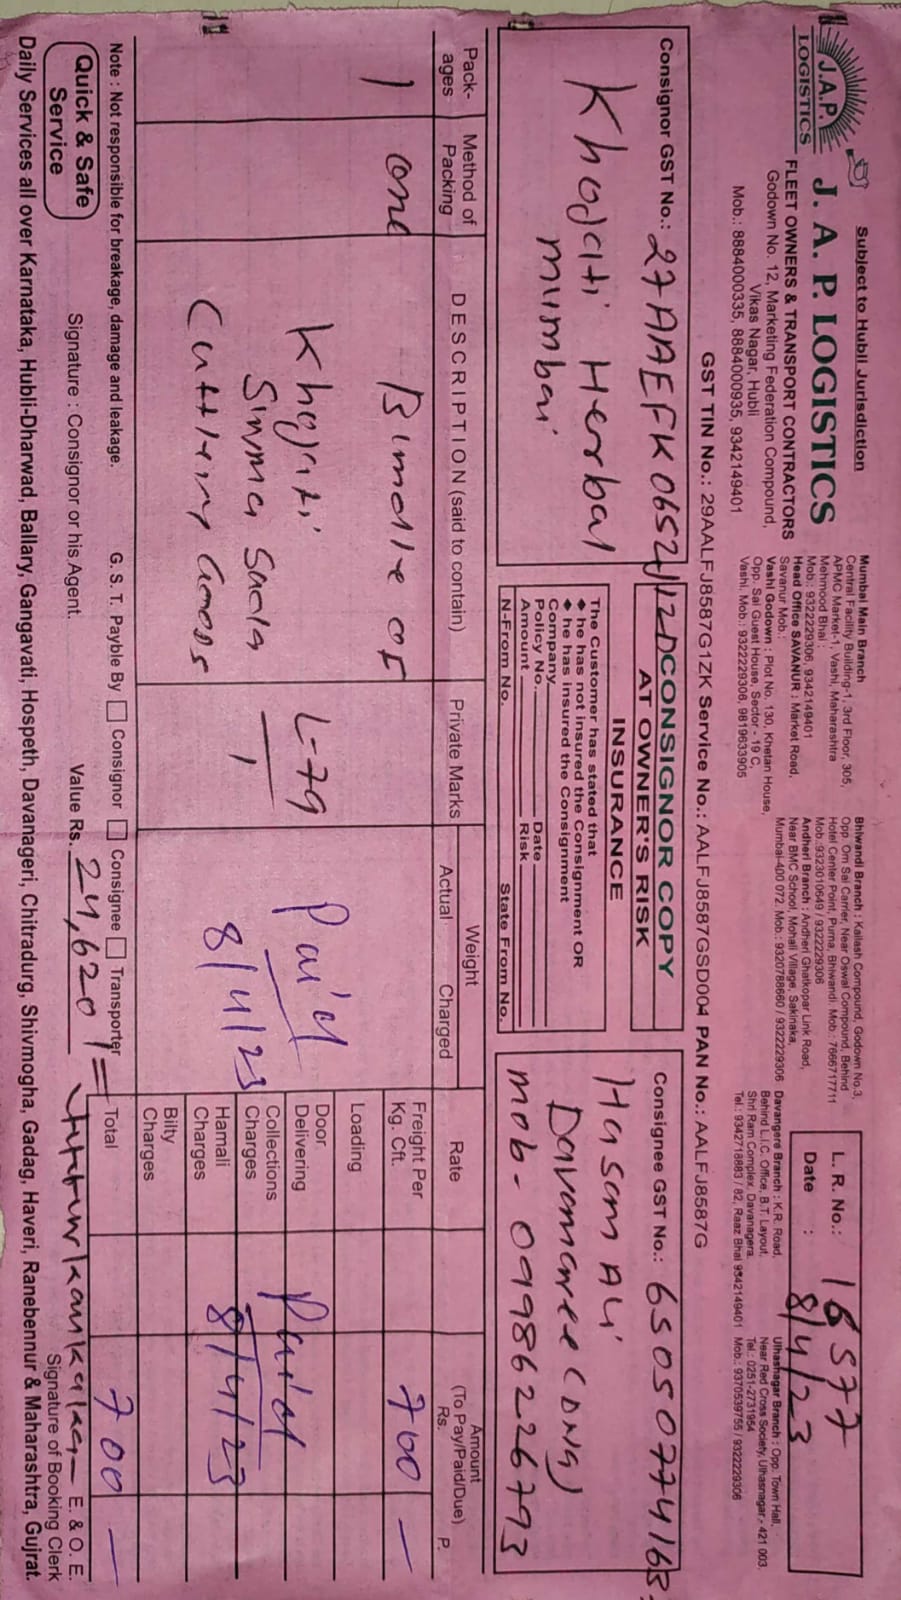 Subject to Hubli Jurisdiction
J.A.P.
LOGISTICS
J. A. P. LOGISTICS
FLEET OWNERS & TRANSPORT CONTRACTORS
Godown No. 12, Marketing Federation Compound,
Vikas Nagar, Hubli
Mob.: 8884000335, 8884000935, 9342149401
Mumbai Main Branch
Central Facility Building-1, 3rd Floor, 305,
APMC Market-1, Vashi, Maharashtra
Mehmood Bhai :
Mob.: 9322229306, 9342149401
Head Office SAVANUR : Market Road,
Savanur Mob.:
Vashi Godown : Plot No. 130, Khetan House,
Opp. Sai Guest House, Sector - 19 C,
Vashi. Mob.: 9322229306, 9819633905
Bhiwandi Branch : Kailash Compound, Godown No.3,
Opp. Om Sai Carrier, Near Oswal Compound, Behind
Hotel Center Point, Purna, Bhiwandi. Mob.: 7666717711
Mob.:9323010649 / 9322229306
Andheri Branch : Andheri Ghatkopar Link Road,
Near BMC School, Mohali Village, Sakinaka,
Mumbai-400 072. Mob.: 9320788660 / 9322229306
Davangere Branch : K.R. Road,
Behind L.I.C. Office, B.T. Layout,
Shri Ram Complex, Davanagera.
Tel.: 9342718883 / 82, Raaz Bhai 9342149401
Ulhasnagar Branch : Opp. Town Hall,
Near Red Cross Society, Ulhasnagar - 421 003.
Tel.: 0251-2731954
Mob.: 9370539755 / 9322229306
L. R. No.: 16577
Date : 8/4/23
GST TIN No.: 29AALFJ8587G1ZK Service No.: AALFJ8587GSD004 PAN No.: AALFJ8587G
Consignor GST No.: 27AAEFK0652J1ZD
Khojati Herbal
mumbai
CONSIGNOR COPY
AT OWNER'S RISK
INSURANCE
The Customer has stated that
◆ he has not insured the Consignment OR
◆ he has insured the Consignment
Company
Policy No. Date
Amount Risk
N-From No. State From No.
Consignee GST No.: 65050774163
Hasam Ali
Davamaree (DNG)
mob- 09986226793
Pack-ages
Method of Packing
DESCRIPTION (said to contain)
Private Marks
Weight
Actual Charged
Rate
Amount
(To Pay/Paid/Due)
Rs. P.
1 one Bundle of
Khojati
Surma Sada
Cuttlery Goods
L-79
1
Paid
8/4/23
Freight Per Kg. Cft. 700 —
Loading
Door Delivering
Collections Charges
Hamali Charges
Bilty Charges
Paid
8/4/23
Total 700 —
Note : Not responsible for breakage, damage and leakage.
G. S. T. Payable By Consignor Consignee Transporter
Quick & Safe
Service
Signature : Consignor or his Agent.
Value Rs. 24,620/=
E. & O. E.
Signature of Booking Clerk
Daily Services all over Karnataka, Hubli-Dharwad, Ballary, Gangavati, Hospeth, Davanageri, Chitradurg, Shivmogha, Gadag, Haveri, Ranebennur & Maharashtra, Gujrat.